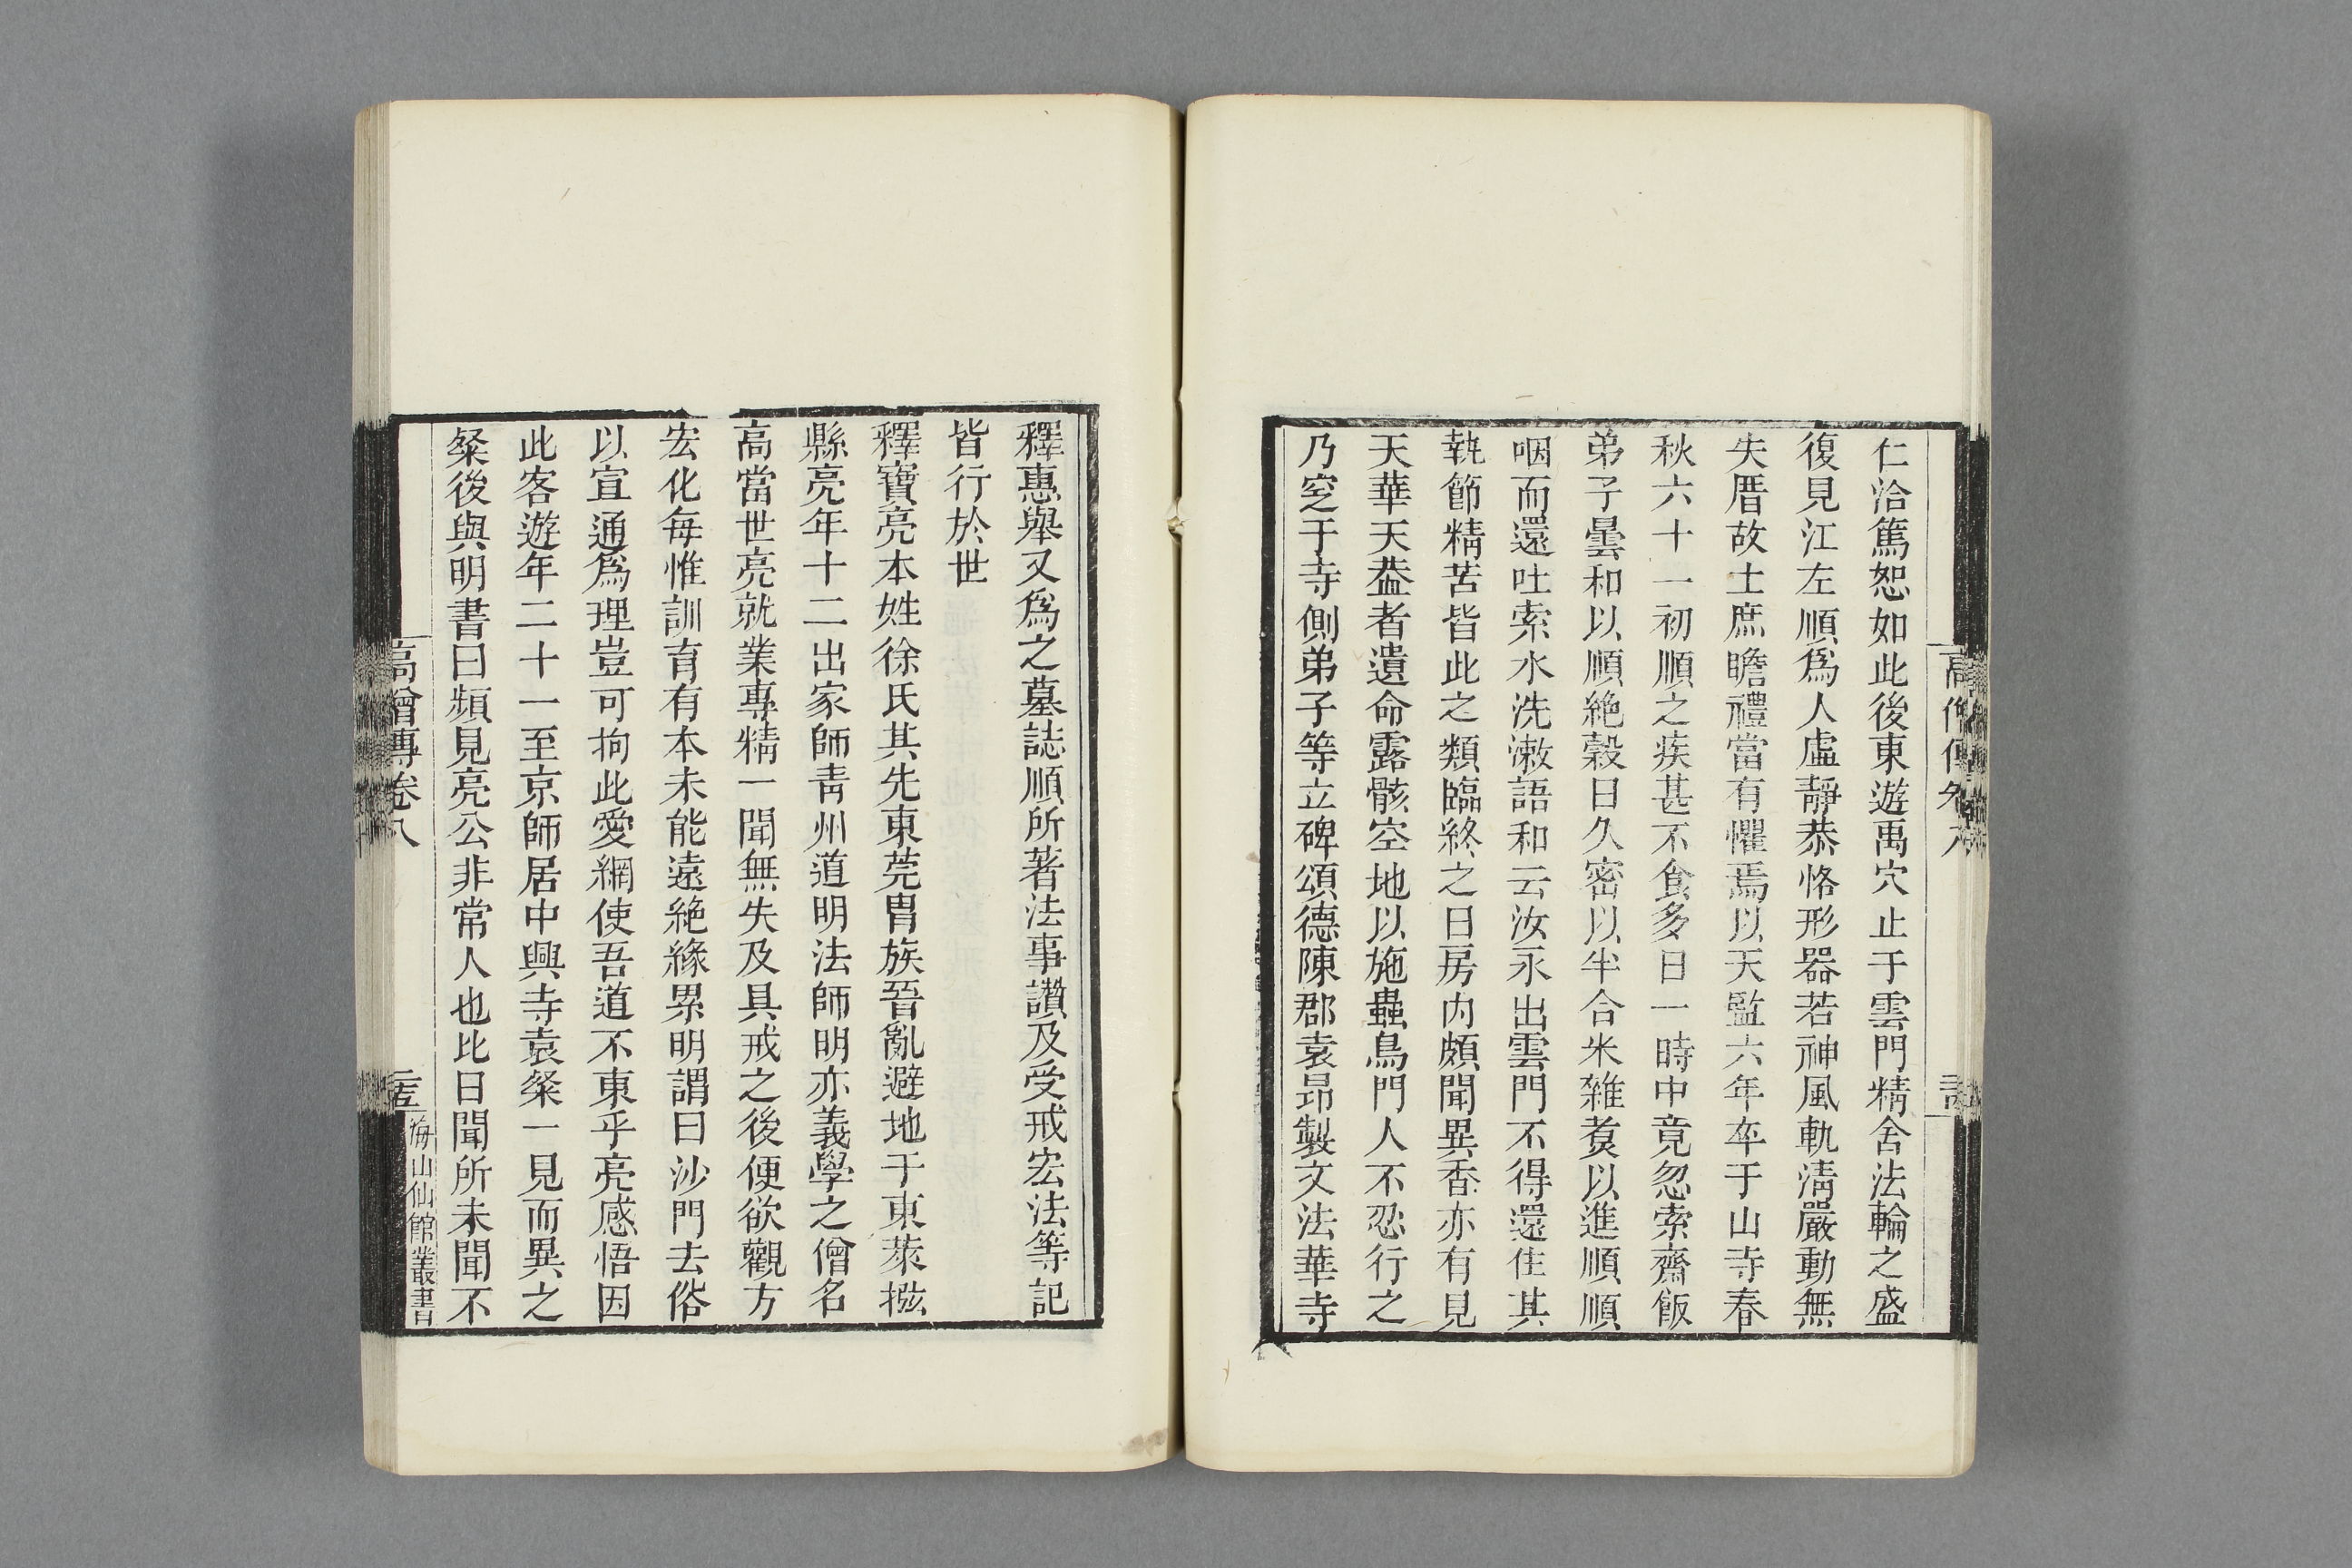 仁洽篤恕如此後東遊禹穴止于雲門精舍法輪之盛
復見江左順爲人虛靜恭恪形器若神風軌清嚴動無
失厝故士庶瞻禮當有懼焉以天監六年卒于山寺春
秋六十一初順之疾甚不食多日一時中竟忽索齋飯
弟子曇和以順絶穀日久密以半合米雜煑以進順順
咽而還吐索水洗漱語和云汝永出雲門不得還住其
執節精苦皆此之類臨終之日房内頗聞異香亦有見
天華天葢者遺命露骸空地以施蟲鳥門人不忍行之
乃窆于寺側弟子等立碑頌德陳郡袁昂製文法華寺
釋惠舉又爲之墓誌順所著法事讚及受戒宏法等記
皆行於世
釋寶亮本姓徐氏其先東莞冑族晉亂避地于東萊掖
縣亮年十二出家師靑州道明法師明亦義學之僧名
高當世亮就業專精一聞無失及具戒之後便欲觀方
宏化每惟訓育有本未能遠絶緣累明謂曰沙門去俗
以宣通爲理豈可拘此愛網使吾道不東乎亮感悟因
此客遊年二十一至京師居中興寺袁粲一見而異之
粲後與明書曰頻見亮公非常人也比日聞所未聞不
高僧傳卷八
海山仙館叢書